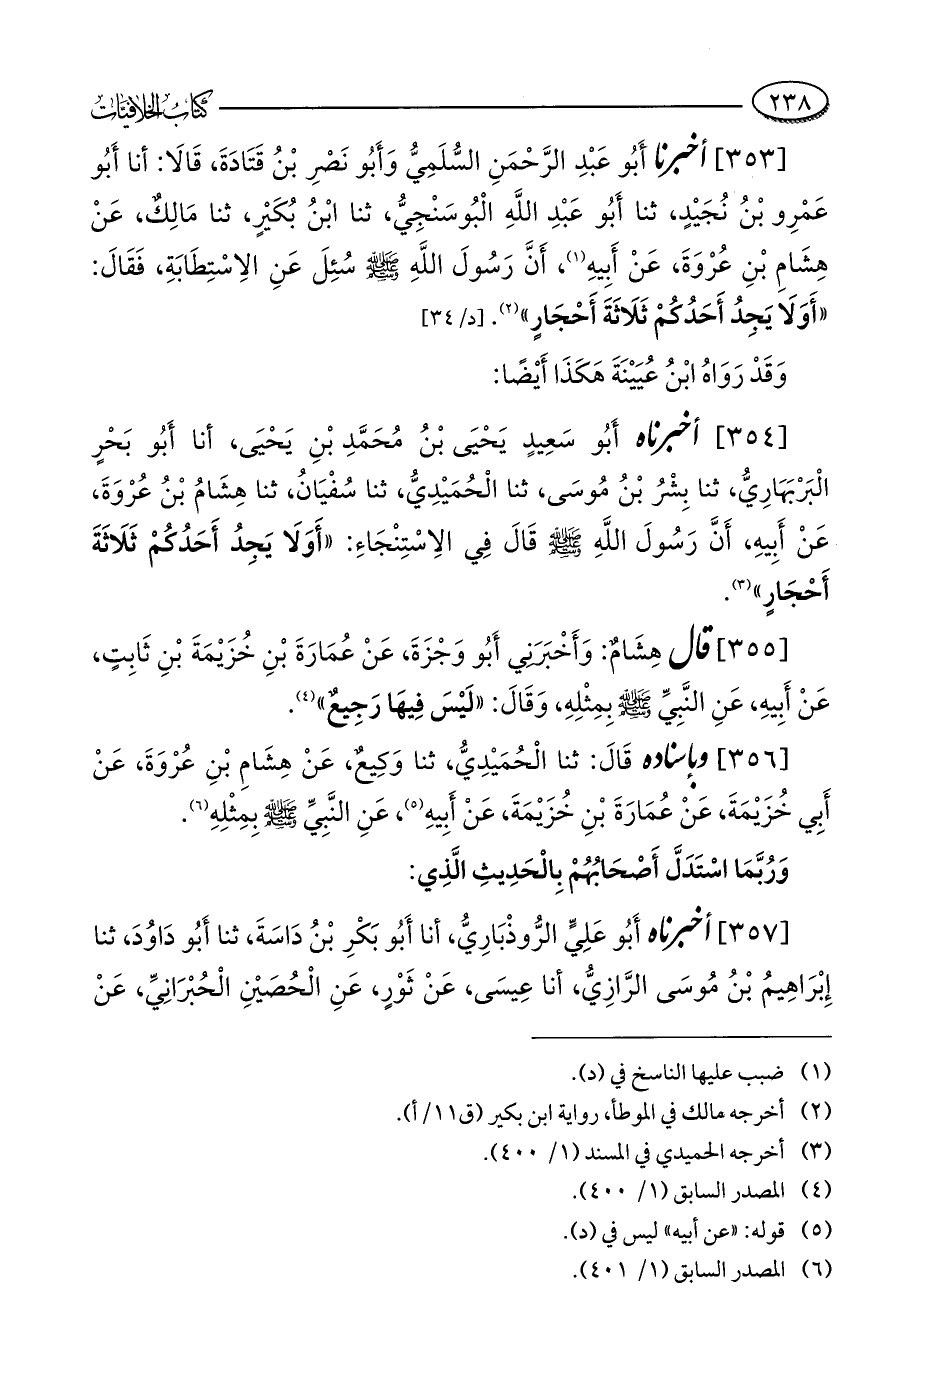 ٢٣٨ كتاب الخلافيات
[٣٥٣] أخبرنا أَبُو عَبْدِ الرَّحْمَنِ السُّلَمِيُّ وَأَبُو نَصْرِ بْنُ قَتَادَةَ، قَالَا: أنا أَبُو
عَمْرِو بْنُ نُجَيْدٍ، ثنا أَبُو عَبْدِ اللَّهِ الْبُوسَنْجِيُّ، ثنا ابْنُ بُكَيْرٍ، ثنا مَالِكٌ، عَنْ
هِشَامِ بْنِ عُرْوَةَ، عَنْ أَبِيهِ(١)، أَنَّ رَسُولَ اللَّهِ ﷺ سُئِلَ عَنِ الِاسْتِطَابَةِ، فَقَالَ:
«أَوَلَا يَجِدُ أَحَدُكُمْ ثَلَاثَةَ أَحْجَارٍ»(٢). [د/ ٣٤]
وَقَدْ رَوَاهُ ابْنُ عُيَيْنَةَ هَكَذَا أَيْضًا:
[٣٥٤] أخبرناه أَبُو سَعِيدٍ يَحْيَى بْنُ مُحَمَّدِ بْنِ يَحْيَى، أنا أَبُو بَحْرٍ
الْبَرْبَهَارِيُّ، ثنا بِشْرُ بْنُ مُوسَى، ثنا الْحُمَيْدِيُّ، ثنا سُفْيَانُ، ثنا هِشَامُ بْنُ عُرْوَةَ،
عَنْ أَبِيهِ، أَنَّ رَسُولَ اللَّهِ ﷺ قَالَ فِي الِاسْتِنْجَاءِ: «أَوَلَا يَجِدُ أَحَدُكُمْ ثَلَاثَةَ
أَحْجَارٍ»(٣).
[٣٥٥] قال هِشَامٌ: وَأَخْبَرَنِي أَبُو وَجْزَةَ، عَنْ عُمَارَةَ بْنِ خُزَيْمَةَ بْنِ ثَابِتٍ،
عَنْ أَبِيهِ، عَنِ النَّبِيِّ ﷺ بِمِثْلِهِ، وَقَالَ: «لَيْسَ فِيهَا رَجِيعٌ»(٤).
[٣٥٦] وبإسناده قَالَ: ثنا الْحُمَيْدِيُّ، ثنا وَكِيعٌ، عَنْ هِشَامِ بْنِ عُرْوَةَ، عَنْ
أَبِي خُزَيْمَةَ، عَنْ عُمَارَةَ بْنِ خُزَيْمَةَ، عَنْ أَبِيهِ(٥)، عَنِ النَّبِيِّ ﷺ بِمِثْلِهِ(٦).
وَرُبَّمَا اسْتَدَلَّ أَصْحَابُهُمْ بِالْحَدِيثِ الَّذِي:
[٣٥٧] أخبرناه أَبُو عَلِيٍّ الرُّوذْبَارِيُّ، أنا أَبُو بَكْرِ بْنُ دَاسَةَ، ثنا أَبُو دَاوُدَ، ثنا
إِبْرَاهِيمُ بْنُ مُوسَى الرَّازِيُّ، أنا عِيسَى، عَنْ ثَوْرٍ، عَنِ الْحُصَيْنِ الْحُبْرَانِيِّ، عَنْ
(١) ضبب عليها الناسخ في (د).
(٢) أخرجه مالك في الموطأ، رواية ابن بكير (ق١١/ أ).
(٣) أخرجه الحميدي في المسند (١/ ٤٠٠).
(٤) المصدر السابق (١/ ٤٠٠).
(٥) قوله: «عن أبيه» ليس في (د).
(٦) المصدر السابق (١/ ٤٠١).